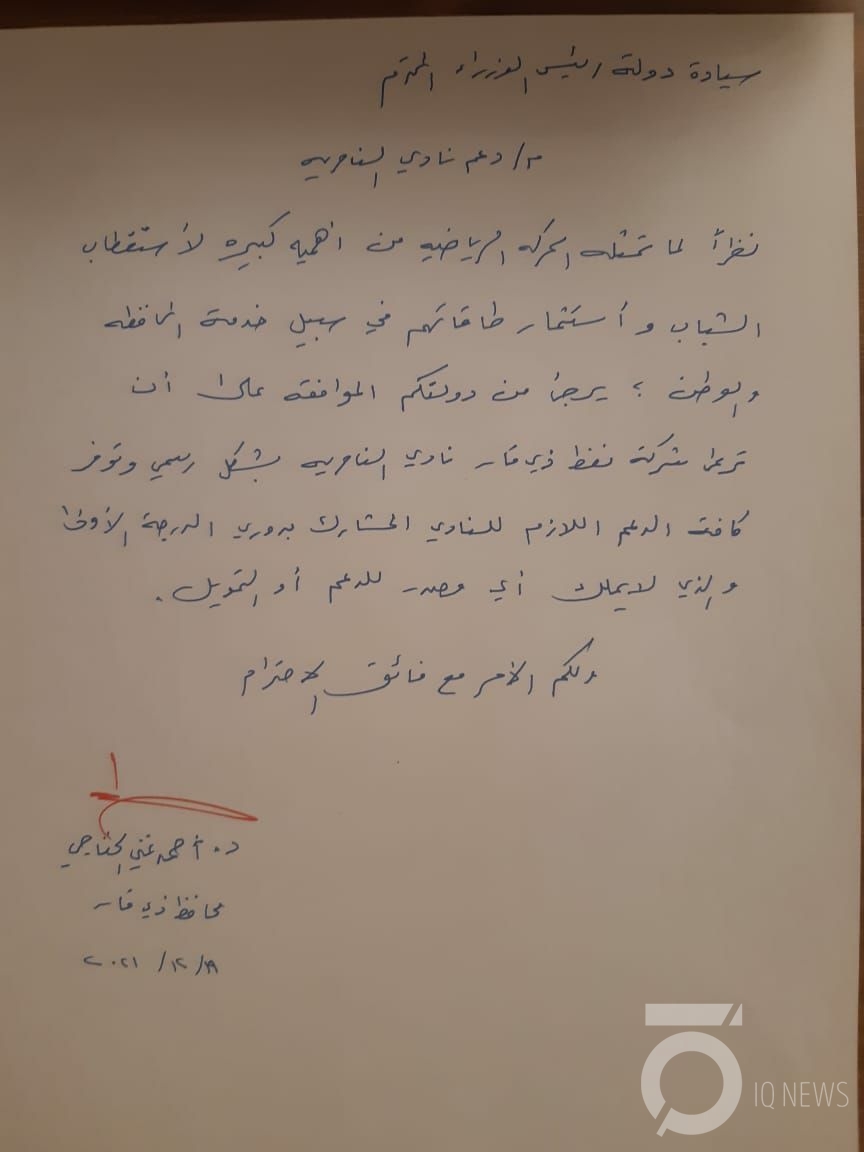 سيادة دولة رئيس الوزراء المحترم
م/ دعم نادي الناصريه
نظراً لما تمثله الحركه الرياضيه من اهميه كبيره لأستقطاب
الشباب و أستثمار طاقاتهم في سبيل خدمة المحافظه
والوطن ؛ يرجى من دولتكم الموافقه على أن
ترعى شركة نفط ذي قار نادي الناصريه بشكل رسمي وتوفر
كافة الدعم اللازم للنادي المشارك بدوري الدرجة الأولى
والذي لا يملك أي مصدر للدعم أو التمويل .
ولكم الأمر مع فائق الاحترام
د. أحمد غني الخفاجي
محافظ ذي قار
٢٠٢١ / ١٢ /
IQ NEWS